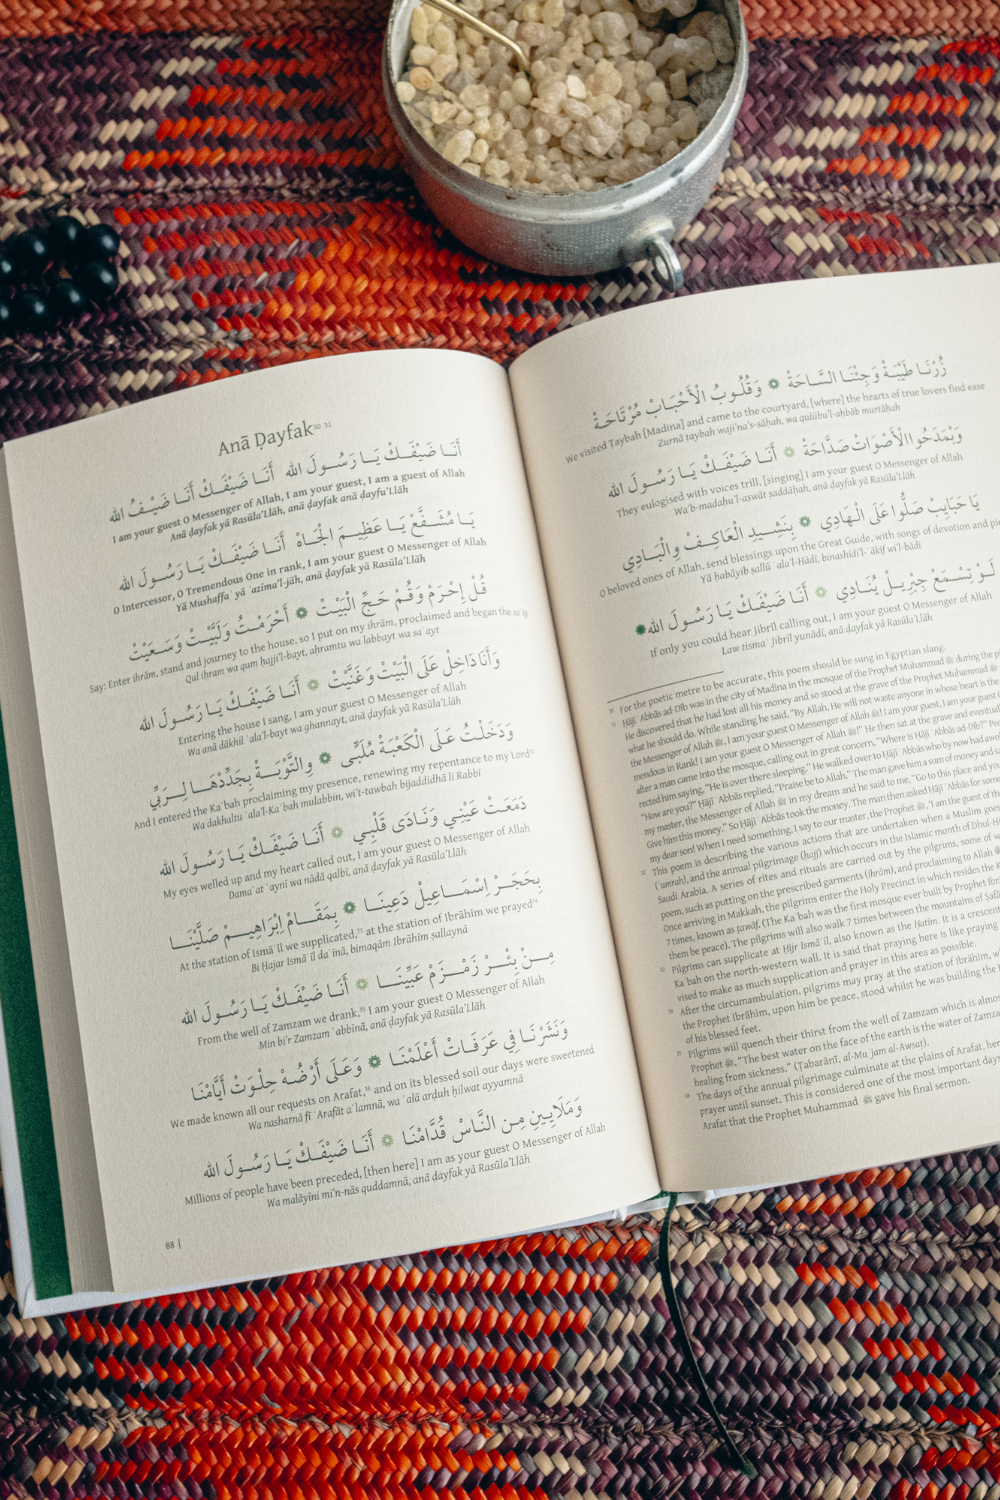 Anā Ḍayfak³⁰ ³¹
أَنَا ضَيْفَـكْ يَـا رَسُـولَ الله أَنَا ضَيْفَـكْ أَنَـا ضَيْـفُ الله
I am your guest O Messenger of Allah, I am your guest, I am a guest of Allah
Anā ḍayfak yā Rasūla'Llāh, anā ḍayfak anā ḍayfu'Llāh
يَـا مُشَـفَّعْ يَـا عَظِيـمَ الْجَـاهْ أَنَـا ضَيْفَـكْ يَـا رَسُـولَ الله
O Intercessor, O Tremendous One in rank, I am your guest O Messenger of Allah
Yā Mushaffaʿ yā ʿaẓīma'l-jāh, anā ḍayfak yā Rasūla'Llāh
قُل إِحْرَمْ وَقُمْ حَجِّ الْبَيْتْ ۞ أَحْرَمْـتُ وَلَبَّيْـتْ وَسَـعَيْتْ
Say: Enter iḥrām, stand and journey to the house, so I put on my iḥrām, proclaimed and began the saʿiy
Qul iḥram wa qum ḥajji'l-bayt, aḥramtu wa labbayt wa saʿayt
وَأَنَا دَاخِلْ عَلَى الْبَيْتْ وَغَنَّيْتْ ۞ أَنَـا ضَيْفَـكْ يَـا رَسُـولَ الله
Entering the house I sang, I am your guest O Messenger of Allah
Wa anā dākhil ʿala'l-bayt wa ghannayt, anā ḍayfak yā Rasūla'Llāh
وَدَخَلْـتُ عَلَـى الْكَعْبَـةْ مُلَبِّـى ۞ وِالتَّوْبَــةْ بِجَدِّدْهَــا لِــرَبِّي
And I entered the Kaʿbah proclaiming my presence, renewing my repentance to my Lord³²
Wa dakhaltu ʿala'l-Kaʿbah mulabbin, wi't-tawbah bijaddidhā li Rabbi
دَمَعَـتْ عَيْنِـي وَنَـادَى قَلْبِـي ۞ أَنَـا ضَيْفَـكْ يَـا رَسُـولَ الله
My eyes welled up and my heart called out, I am your guest O Messenger of Allah
Damaʿat ʿaynī wa nādā qalbi, anā ḍayfak yā Rasūla'Llāh
بِحَجَـرْ إِسْمَــاعِيلْ دَعِينَـا ۞ بِمَقَــامْ إِبْرَاهِيـــمْ صَلَّيْنَـــا
At the station of Ismāʿīl we supplicated,³³ at the station of Ibrāhīm we prayed³⁴
Bi Ḥajar Ismāʿīl daʿīnā, bimaqām Ibrāhīm ṣallaynā
مِــنْ بِئْــرْ زَمْــزَمْ عَبِّينَــا ۞ أَنَـا ضَيْفَـكْ يَـا رَسُـولَ الله
From the well of Zamzam we drank,³⁵ I am your guest O Messenger of Allah
Min bi'r Zamzam ʿabbīnā, anā ḍayfak yā Rasūla'Llāh
وَنَشَرْنَـا فِي عَرَفَـاتْ أَعْلَمْنَـا ۞ وَعَلَى أَرْضُـهْ حِلْـوَتْ أَيَّامْنَا
We made known all our requests on Arafat,³⁶ and on its blessed soil our days were sweetened
Wa nasharnā fī ʿArafāt aʿlamnā, wa ʿalā arḍuh ḥilwat ayyamnā
وَمَلَايِـيـنِ مِـن النَّـاسْ قُدَّامْنَا ۞ أَنَـا ضَيْفَـكْ يَـا رَسُـولَ الله
Millions of people have been preceded, [then here] I am as your guest O Messenger of Allah
Wa malāyīni mi'n-nās quddamnā, anā ḍayfak yā Rasūla'Llāh
88 |
زُرْنَـا طَيْبَـةْ وَجِئْنَـا السَّـاحَةْ ۞ وَقُلُـوبُ الْأَحْبَـابْ مُرْتَاحَـةْ
We visited Taybah [Madina] and came to the courtyard, [where] the hearts of true lovers find ease
Zurnā ṭaybah waji'na's-sāḥah, wa qulūbu'l-aḥbāb murtāḥah
وَيْمَدَحُـوا الْأَصْوَاتْ صَدَّاحَةْ ۞ أَنَـا ضَيْفَـكْ يَـا رَسُـولَ الله
They eulogised with voices trill, [singing] I am your guest O Messenger of Allah
Wa'b-madaḥu'l-aṣwāt ṣaddāḥah, anā ḍayfak yā Rasūla'Llāh
يَا حَبَايِبْ صَلُّوا عَلَى الْـهَادِي ۞ بِنَشِـيدِ الْعَاكِــفْ وِالْبَــادِي
O beloved ones of Allah, send blessings upon the Great Guide, with songs of devotion and
Yā ḥabāyib ṣallūʿala'l-Hādī, binashīdi'l-ʿākif wi'l-bādī
لَـوْ تِسْـمَعْ جِبْرِيـلْ يُنَـادِي ۞ أَنَا ضَيْفَـكْ يَـا رَسُـولَ الله ۞
If only you could hear Jibrīl calling out, I am your guest O Messenger of Allah
Law tismaʿ Jibrīl yunādī, anā ḍayfak yā Rasūla'Llāh
³⁰ For the poetic metre to be accurate, this poem should be sung in Egyptian slang.
³¹ Ḥājī ʿAbbās ad-Dīb was in the city of Madina in the mosque of the Prophet Muhammad ﷺ during the
He discovered that he had lost all his money and so stood at the grave of the Prophet Muhammad ﷺ
what he should do. While standing he said, "By Allah, He will not waste anyone in whose heart is the
the Messenger of Allah ﷺ, I am your guest O Messenger of Allah ﷺ! I am your guest, I am your guest
mendous in Rank! I am your guest O Messenger of Allah ﷺ!" He then sat at the grave and
after a man came into the mosque, calling out in great concern, "Where is Ḥājī ʿAbbās ad-Dīb?"
rected him saying, "He is over there sleeping." He walked over to Ḥājī ʿAbbās who by now had
"How are you?" Ḥājī ʿAbbās replied, "Praise be to Allah." The man gave him a sum of money and
my master, the Messenger of Allah ﷺ in my dream and he said to me, "Go to this place and
Give him this money." So Ḥājī ʿAbbās took the money. The man then asked Ḥājī ʿAbbās for
my dear son! When I need something, I say to our master, the Prophet ﷺ, 'I am the guest of
³² This poem is describing the various actions that are undertaken when a Muslim goes
(ʿumrah), and the annual pilgrimage (ḥajj) which occurs in the Islamic month of Dhul-
Saudi Arabia. A series of rites and rituals are carried out by the pilgrims, some of
poem, such as putting on the prescribed garments (iḥrām), and proclaiming to Allah
Once arriving in Makkah, the pilgrims enter the Holy Precinct in which resides the
7 times, known as ṭawāf. (The Kaʿbah was the first mosque ever built by Prophet
them be peace). The pilgrims will also walk 7 times between the mountains of
³³ Pilgrims can supplicate at Ḥijr Ismāʿīl, also known as the Ḥaṭīm. It is a crescent
Kaʿbah on the north-western wall. It is said that praying here is like praying
vised to make as much supplication and prayer in this area as possible.
³⁴ After the circumambulation, pilgrims may pray at the station of Ibrāhīm,
the Prophet Ibrāhīm, upon him be peace, stood whilst he was building the
of his blessed feet.
³⁵ Pilgrims will quench their thirst from the well of Zamzam which is
Prophet ﷺ, "The best water on the face of the earth is the water of
healing from sickness," (Ṭabarānī, al-Muʿjam al-Awsaṭ).
³⁶ The days of the annual pilgrimage culminate at the plains of Arafat,
prayer until sunset. This is considered one of the most important days
Arafat that the Prophet Muhammad ﷺ gave his final sermon.